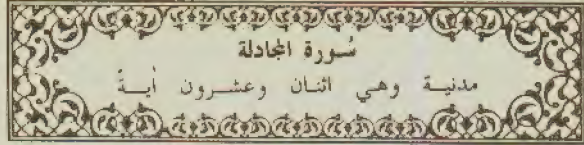 سُورة المجادلة
مدنية وهي اثنان وعشرون أيةً